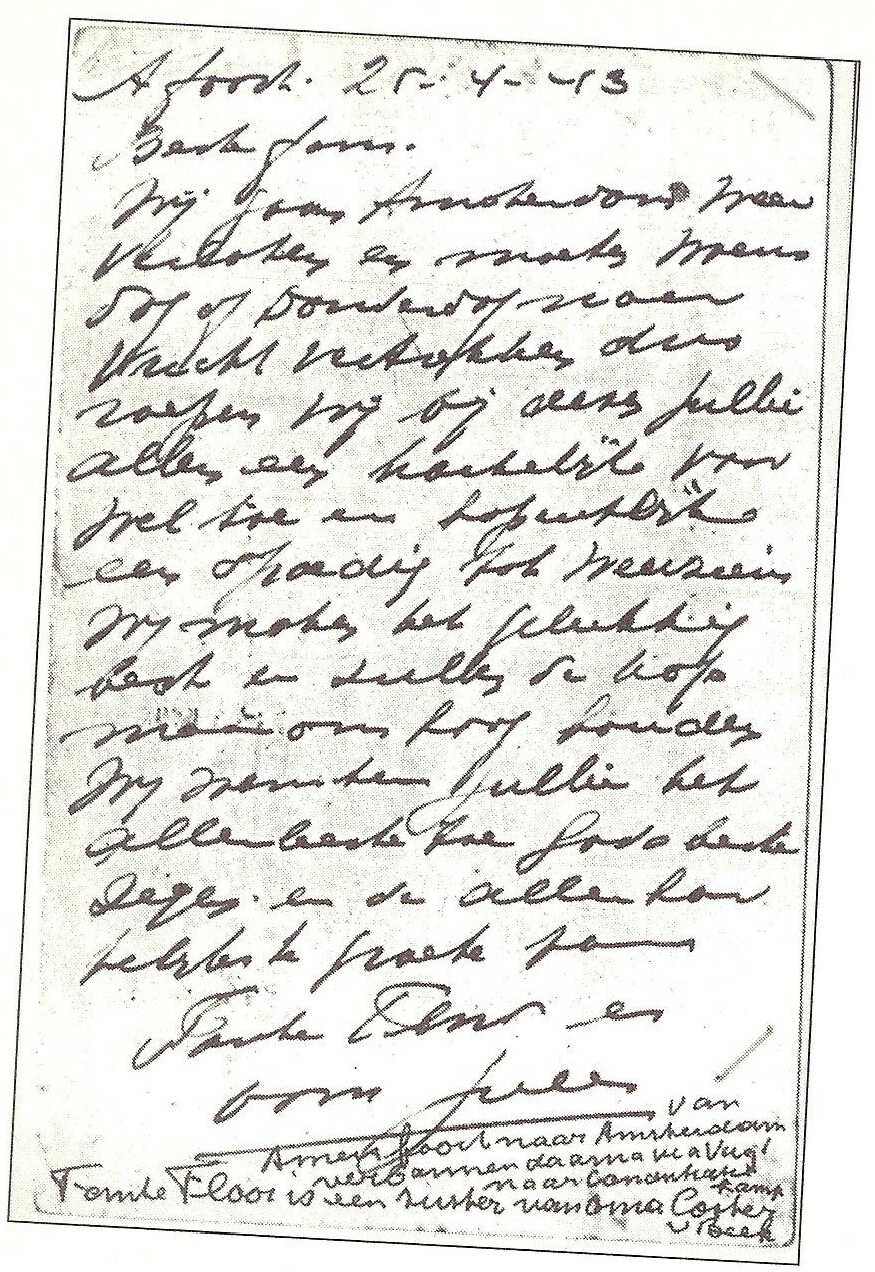 A'foort. 25-4-43
Beste fam.
Wij gaan Amsterdam weer
verlaten en moeten Woens
dag of Donderdag naar
Vucht vertrekken dus
roepen wij bij deze jullie
allen een hartelijk vaar
wel toe en hopentlijk
een spoedig tot weerziens
Wij maken het gelukkig
best en zullen de kop
maar ons hoog houden
Wij wenschen jullie het
allerbeste toe Gods beste
Zegen en de aller har
telijkste groete van
Tante Floor en
oom Jules
van
Amersfoort naar Amsterdam
verbannen daarna via Vugt
naar Concentratie
kamp
Tante Floor is een zuster van oma Coster
v Beek